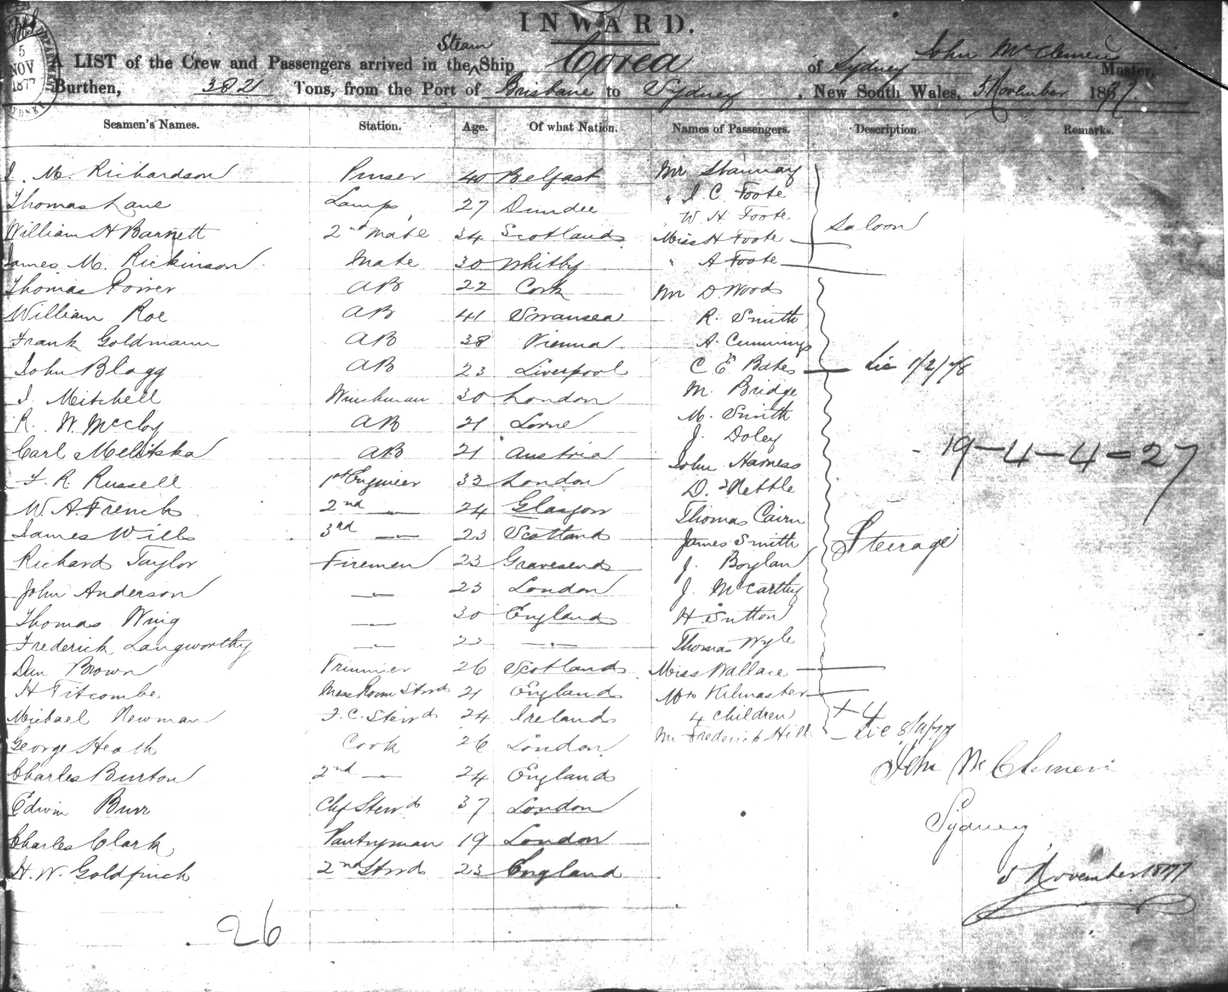 INWARD.
5 NOV 1877
A LIST of the Crew and Passengers arrived in the Steam Ship Corea of Sydney John McClemen Master,
Burthen, 382 Tons, from the Port of Brisbane to Sydney, New South Wales, 5 November 1877
Seamen's Names. Station. Age. Of what Nation. Names of Passengers. Description. Remarks.
J. M. Richardson Purser 40 Belfast Mr Stannay
Thomas Lane Lamps 27 Dundee " J. C. Foote
William H Barnett 2nd Mate 34 Scotland W H Foote Saloon
James M. Rickinson Mate 30 Whitby Miss H Foote
Thomas AB 22 Cork " A Foote
William Roe AB 41 Swansea Mr D Woods
Frank Goldmann AB 38 Vienna R. Smith
John Blagg AB 23 Liverpool A. Cummings
J Mitchell Winchman 30 London C E Bates Lic 1/2/78
R. W. McCloy AB 21 Lorne M. Bridge
Carl Melitska AB 21 Austria M. Smith
F. R Russell 1st Engineer 32 London J. Doley
W. A French 2nd — 24 Glasgow John Harness 19-4-4=27
James Wills 3rd — 23 Scotland D. Nettle
Richard Taylor Firemen 23 Gravesend Thomas Cairn
John Anderson — 23 London James Smith Steerage
Thomas Wing — 30 England J. Boylan
Frederick Langworthy — 23 — J. McCarthy
Dun Brown Trimmer 26 Scotland H Sutton
H Titcombe Mess Room Stewd 21 England Thomas Wyle
Michael Newman F. C. Stewd 24 Ireland Miss Wallace
George Heath Cook 26 London Mrs Kilmaster
Charles Burton 2nd — 24 England 4 Children + 4
Edwin Burr Chf Stewd 37 London Mr Frederick Hill Lic
Charles Clark Pantryman 19 London
H. W. Goldfinch 2nd Stewd 23 England
26
John McClemen
Sydney
5 November 1877